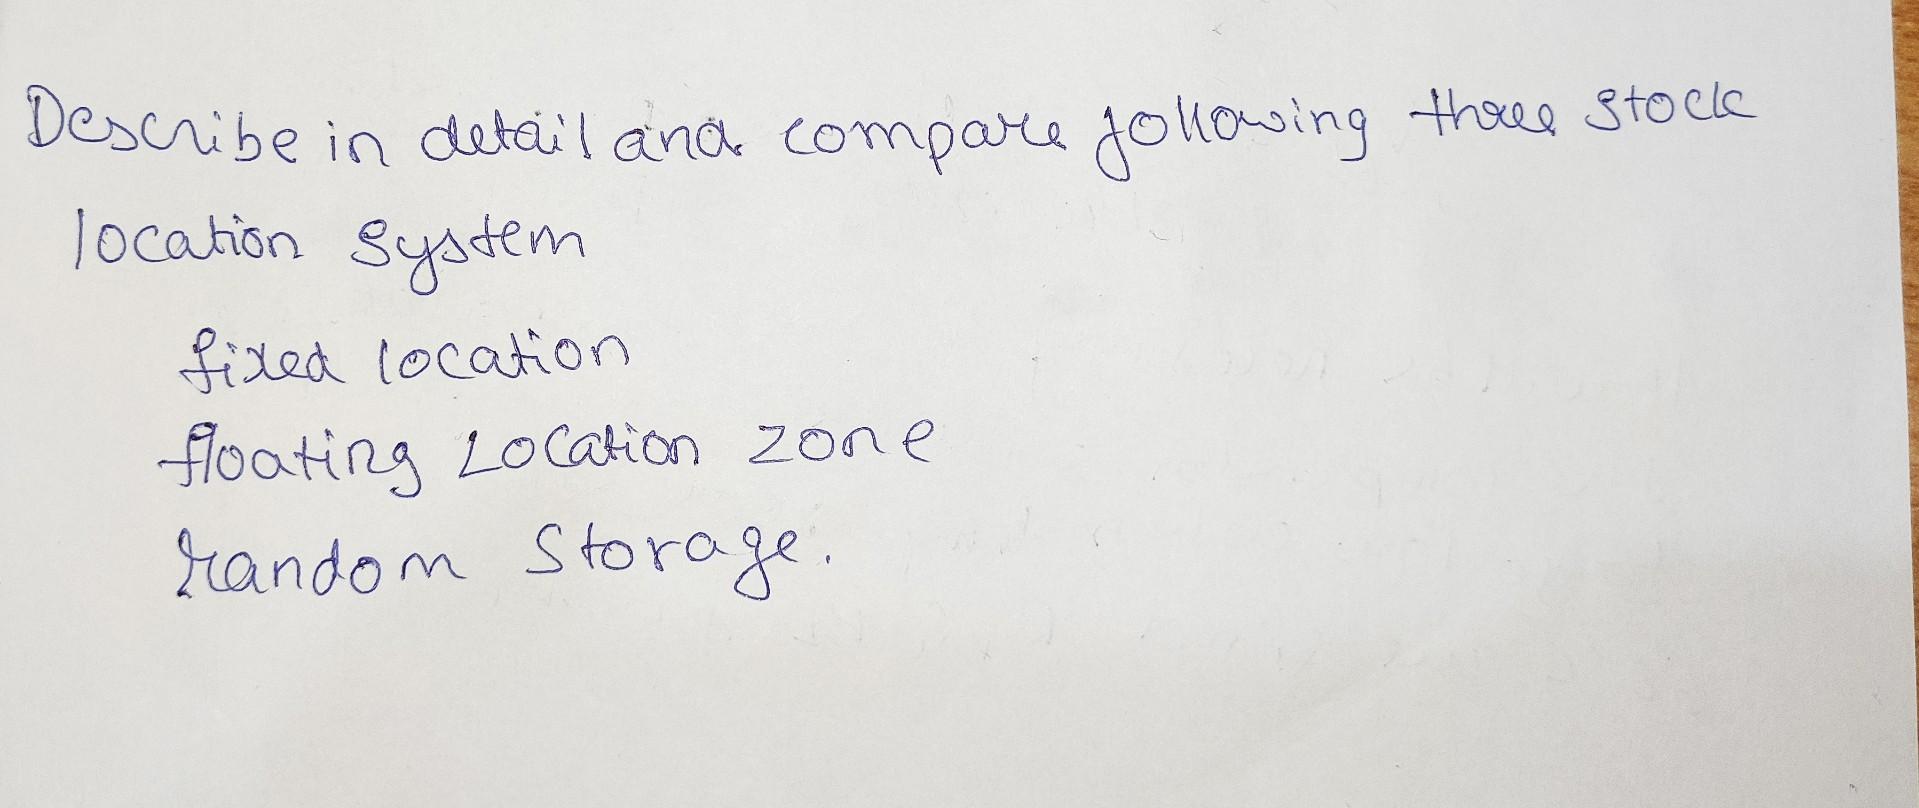 Describe in detail and compare following three stock
location system
fixed location
floating Location zone
random Storage.